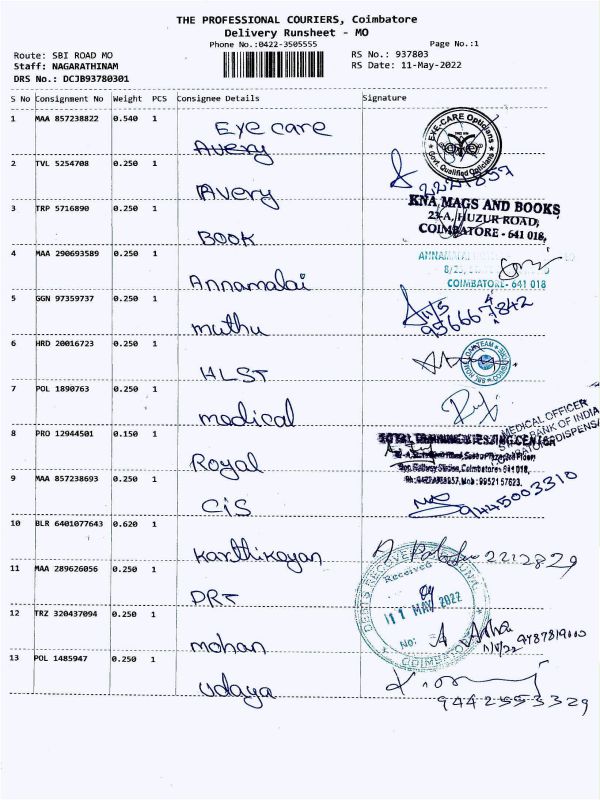 THE PROFESSIONAL COURIERS, Coimbatore
Delivery Runsheet - MO
Phone No.:0422-3505555
Page No.:1
Route: SBI ROAD MO
RS No.: 937803
Staff: NAGARATHINAM
RS Date: 11-May-2022
DRS No.: DCJB93780301
S No Consignment No Weight PCS Consignee Details Signature
1 MAA 857238822 0.540 1 Eye care
Avery
EYE-CARE Opticians
Govt. Qualified Opticians
2 TVL 5254708 0.250 1 Avery
2221857
3 TRP 5716890 0.250 1 BOOK
KNA MAGS AND BOOKS
23-A, HUZUR ROAD,
COIMBATORE - 641 018,
4 MAA 290693589 0.250 1 Annamalai
COIMBATORE - 641 018
5 GGN 97359737 0.250 1 muthu
9566647842
6 HRD 20016723 0.250 1 HLST
7 POL 1890763 0.250 1 medical
MEDICAL OFFICER
BANK OF INDIA
8 PRO 12944501 0.150 1 Royal
9 MAA 857238693 0.250 1 CiS
9445003310
10 BLR 6401077643 0.620 1 Karthikayan
2212829
11 MAA 289626056 0.250 1 DRT
Received
11 MAY 2022
No:
12 TRZ 320437094 0.250 1 mohan
11/5/22
13 POL 1485947 0.250 1 udaya
9442553329